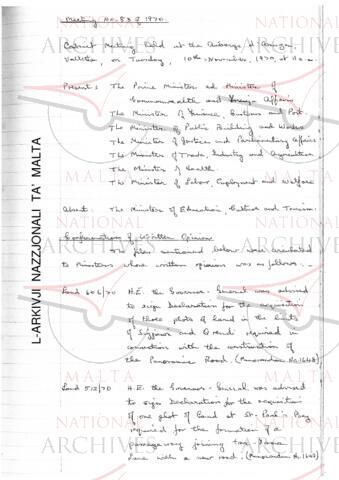 Meeting No. 83 of 1970.
Cabinet Meeting held at the Auberge d'Aragon
Valletta, on Tuesday, 10th November, 1970, at
Present: The Prime Minister and Minister of
Commonwealth and Foreign Affairs
The Minister of Finance, Customs and Port
The Minister of Public Building and Works
The Minister of Justice and Parliamentary Affairs
The Minister of Trade, Industry and Agriculture
The Minister of Health
The Minister of Labour, Employment and Welfare
Absent: The Minister of Education, Culture and Tourism.
Confirmation of Written Opinion
The files mentioned below were circulated
to Ministers whose written opinion was as follows:-
Land 606/70 H.E. the Governor-General was advised
to sign Declaration for the acquisition
of three plots of land in the limits
of Siggiewi and Qrendi required in
connection with the construction of
the Panoramic Road. (Memorandum No.
Land 512/70 H.E. the Governor-General was advised
to sign Declaration for the acquisition
of one plot of land at St. Paul's Bay
required for the formation of a
passageway joining
Lane with a new road. (Memorandum No.
L-ARKIVJI NAZZJONALI TA' MALTA
NATIONAL
ARCHIVES
MALTA